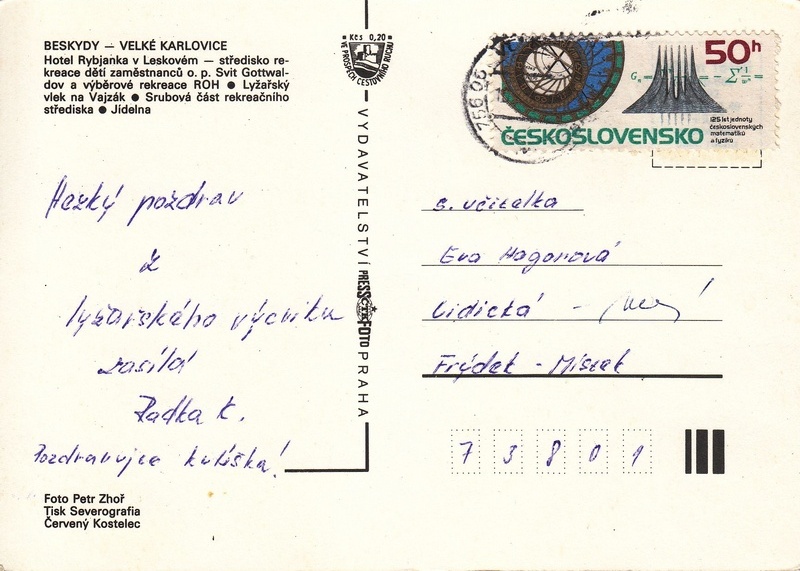 BESKYDY — VELKÉ KARLOVICE
Hotel Rybjanka v Leskovém — středisko re-
kreace dětí zaměstnanců o. p. Svit Gottwal-
dov a výběrové rekreace ROH ● Lyžařský
vlek na Vajzák ● Srubová část rekreačního
střediska ● Jídelna
Kčs 0,20
VE PROSPĚCH CESTOVNÍHO RUCHU
756 06
50h
ČESKOSLOVENSKO
125 let jednoty
československých
matematiků
a fyziků
Hezký pozdrav
z
lyžařského výcviku
zasílá
Radka K.
Pozdravujce kulíška!
VYDAVATELSTVÍ PRESSFOTO PRAHA
ČTK
s. učitelka
Eva Hagarová
Lidická -
Frýdek - Místek
7 3 8 0 1
Foto Petr Zhoř
Tisk Severografia
Červený Kostelec